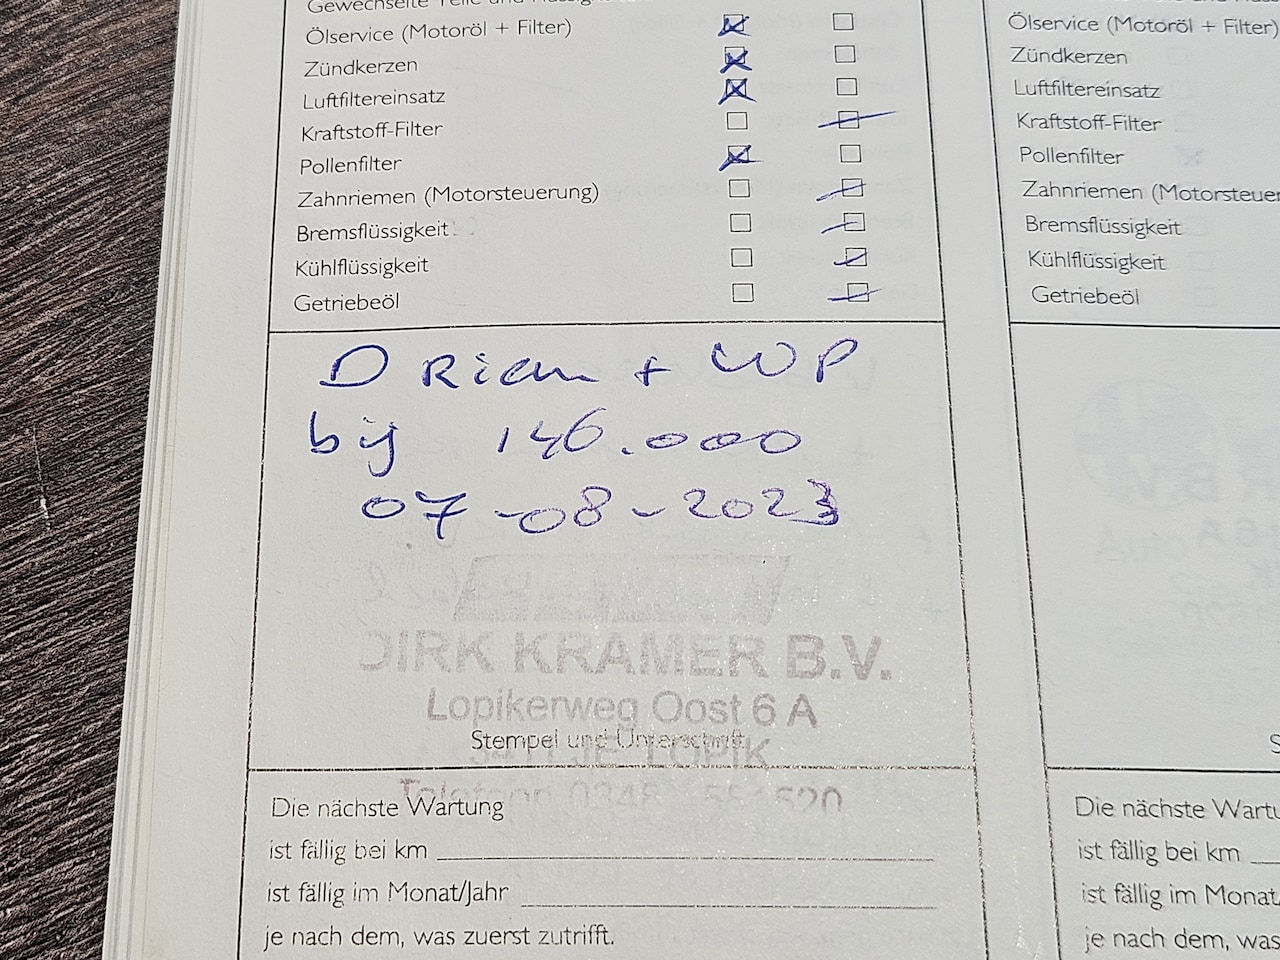 Ölservice (Motoröl + Filter)
Zündkerzen
Luftfiltereinsatz
Kraftstoff-Filter
Pollenfilter
Zahnriemen (Motorsteuerung)
Bremsflüssigkeit
Kühlflüssigkeit
Getriebeöl
D Riem + WP
bij 146.000
07-08-2023
DIRK KRAMER B.V.
Lopikerweg Oost 6 A
Stempel und Unterschrift
LOPIK
Telefoon 0348
Die nächste Wartung
ist fällig bei km
ist fällig im Monat/Jahr
je nach dem, was zuerst zutrifft.
Ölservice (Motoröl + Filter)
Zündkerzen
Luftfiltereinsatz
Kraftstoff-Filter
Pollenfilter
Zahnriemen (Motorsteuer
Bremsflüssigkeit
Kühlflüssigkeit
Getriebeöl
S
Die nächste Wartu
ist fällig bei km
ist fällig im Monat
je nach dem, was